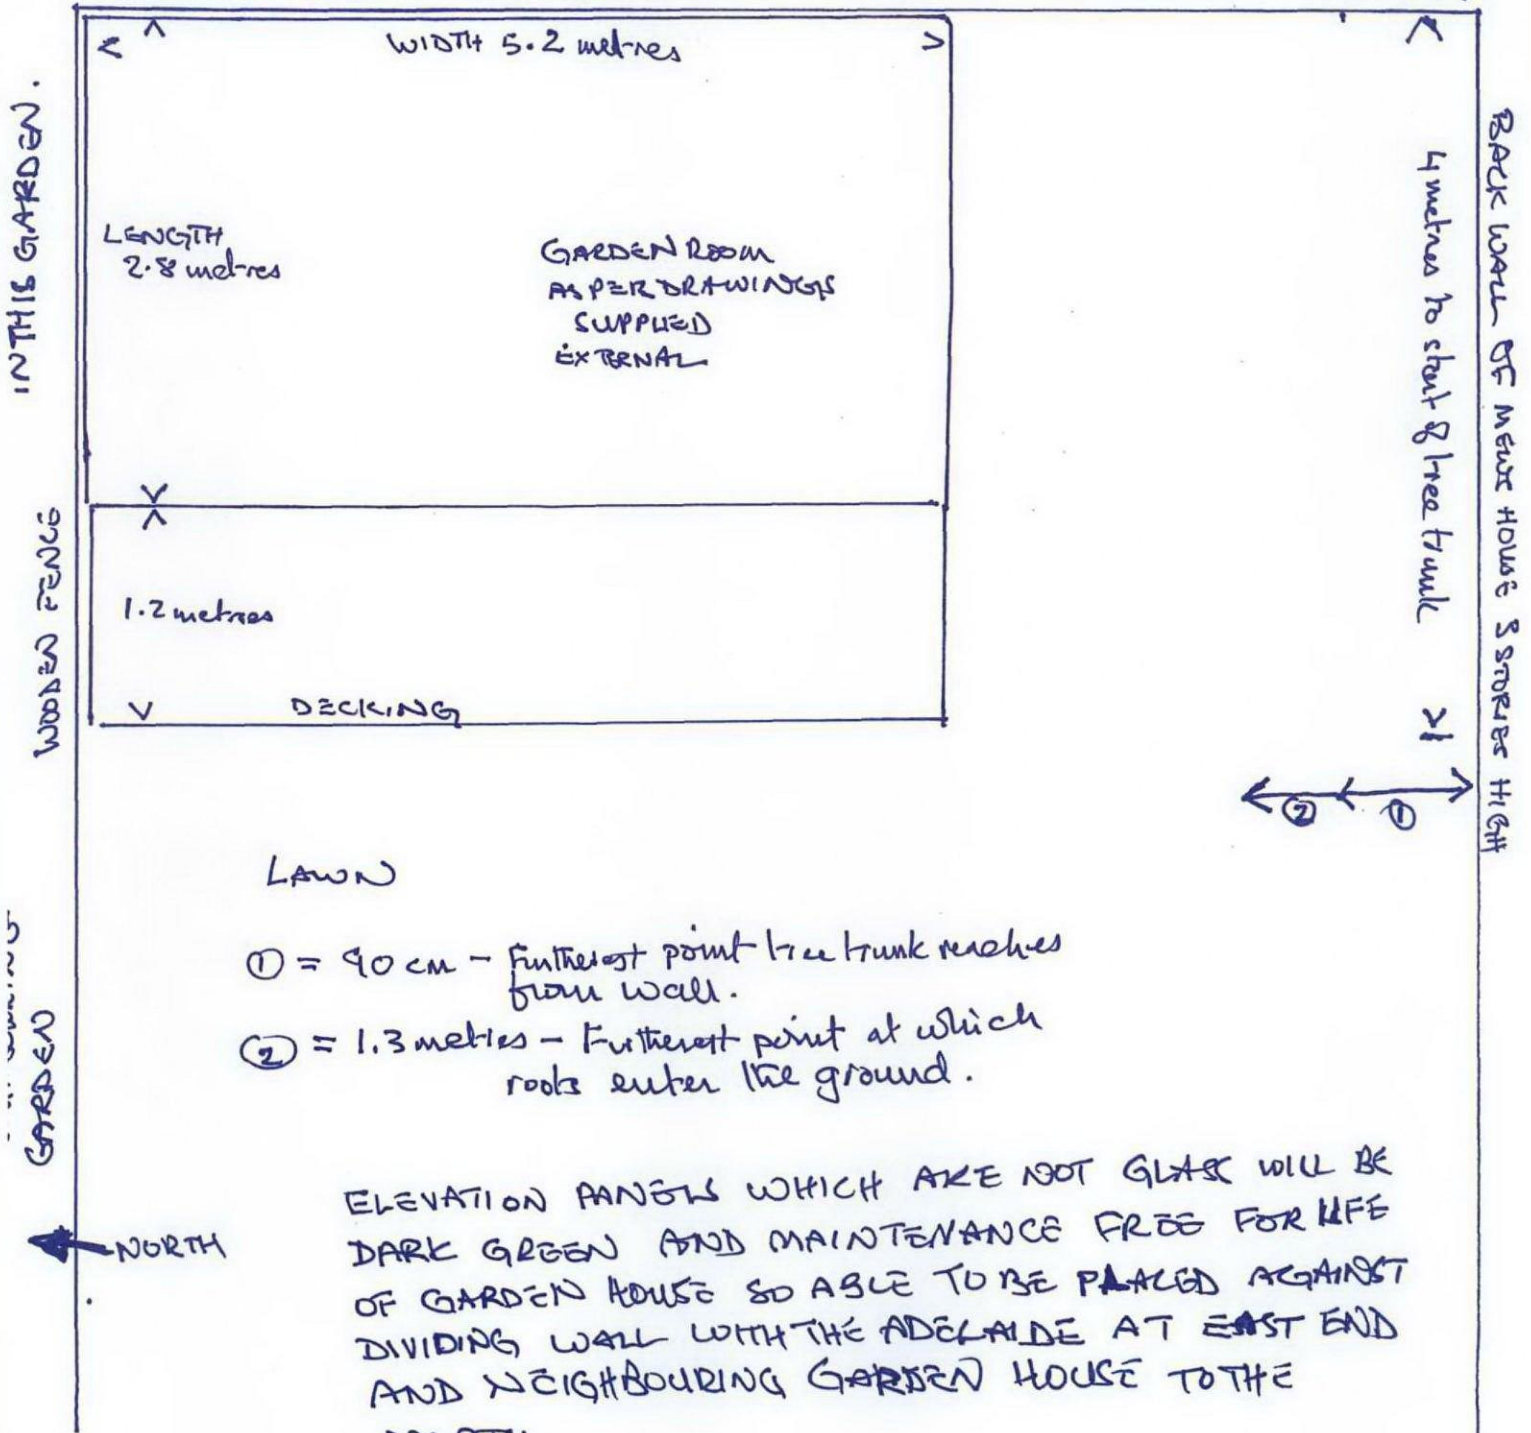 WIDTH 5.2 metres
LENGTH
2.8 metres
GARDEN ROOM
AS PER DRAWINGS
SUPPLIED
EXTERNAL
1.2 metres
DECKING
IN THIS GARDEN.
WOODEN FENCE
GARDEN
4 metres to start of tree trunk
BACK WALL OF MEWS HOUSE 3 STORIES HIGH
② ①
LAWN
① = 90 cm - Furtherest point tree trunk reaches
from wall.
② = 1.3 metres - Furtherest point at which
roots enter the ground.
NORTH
ELEVATION PANELS WHICH ARE NOT GLASS WILL BE
DARK GREEN AND MAINTENANCE FREE FOR LIFE
OF GARDEN HOUSE SO ABLE TO BE PLACED AGAINST
DIVIDING WALL WITH THE ADELAIDE AT EAST END
AND NEIGHBOURING GARDEN HOUSE TO THE